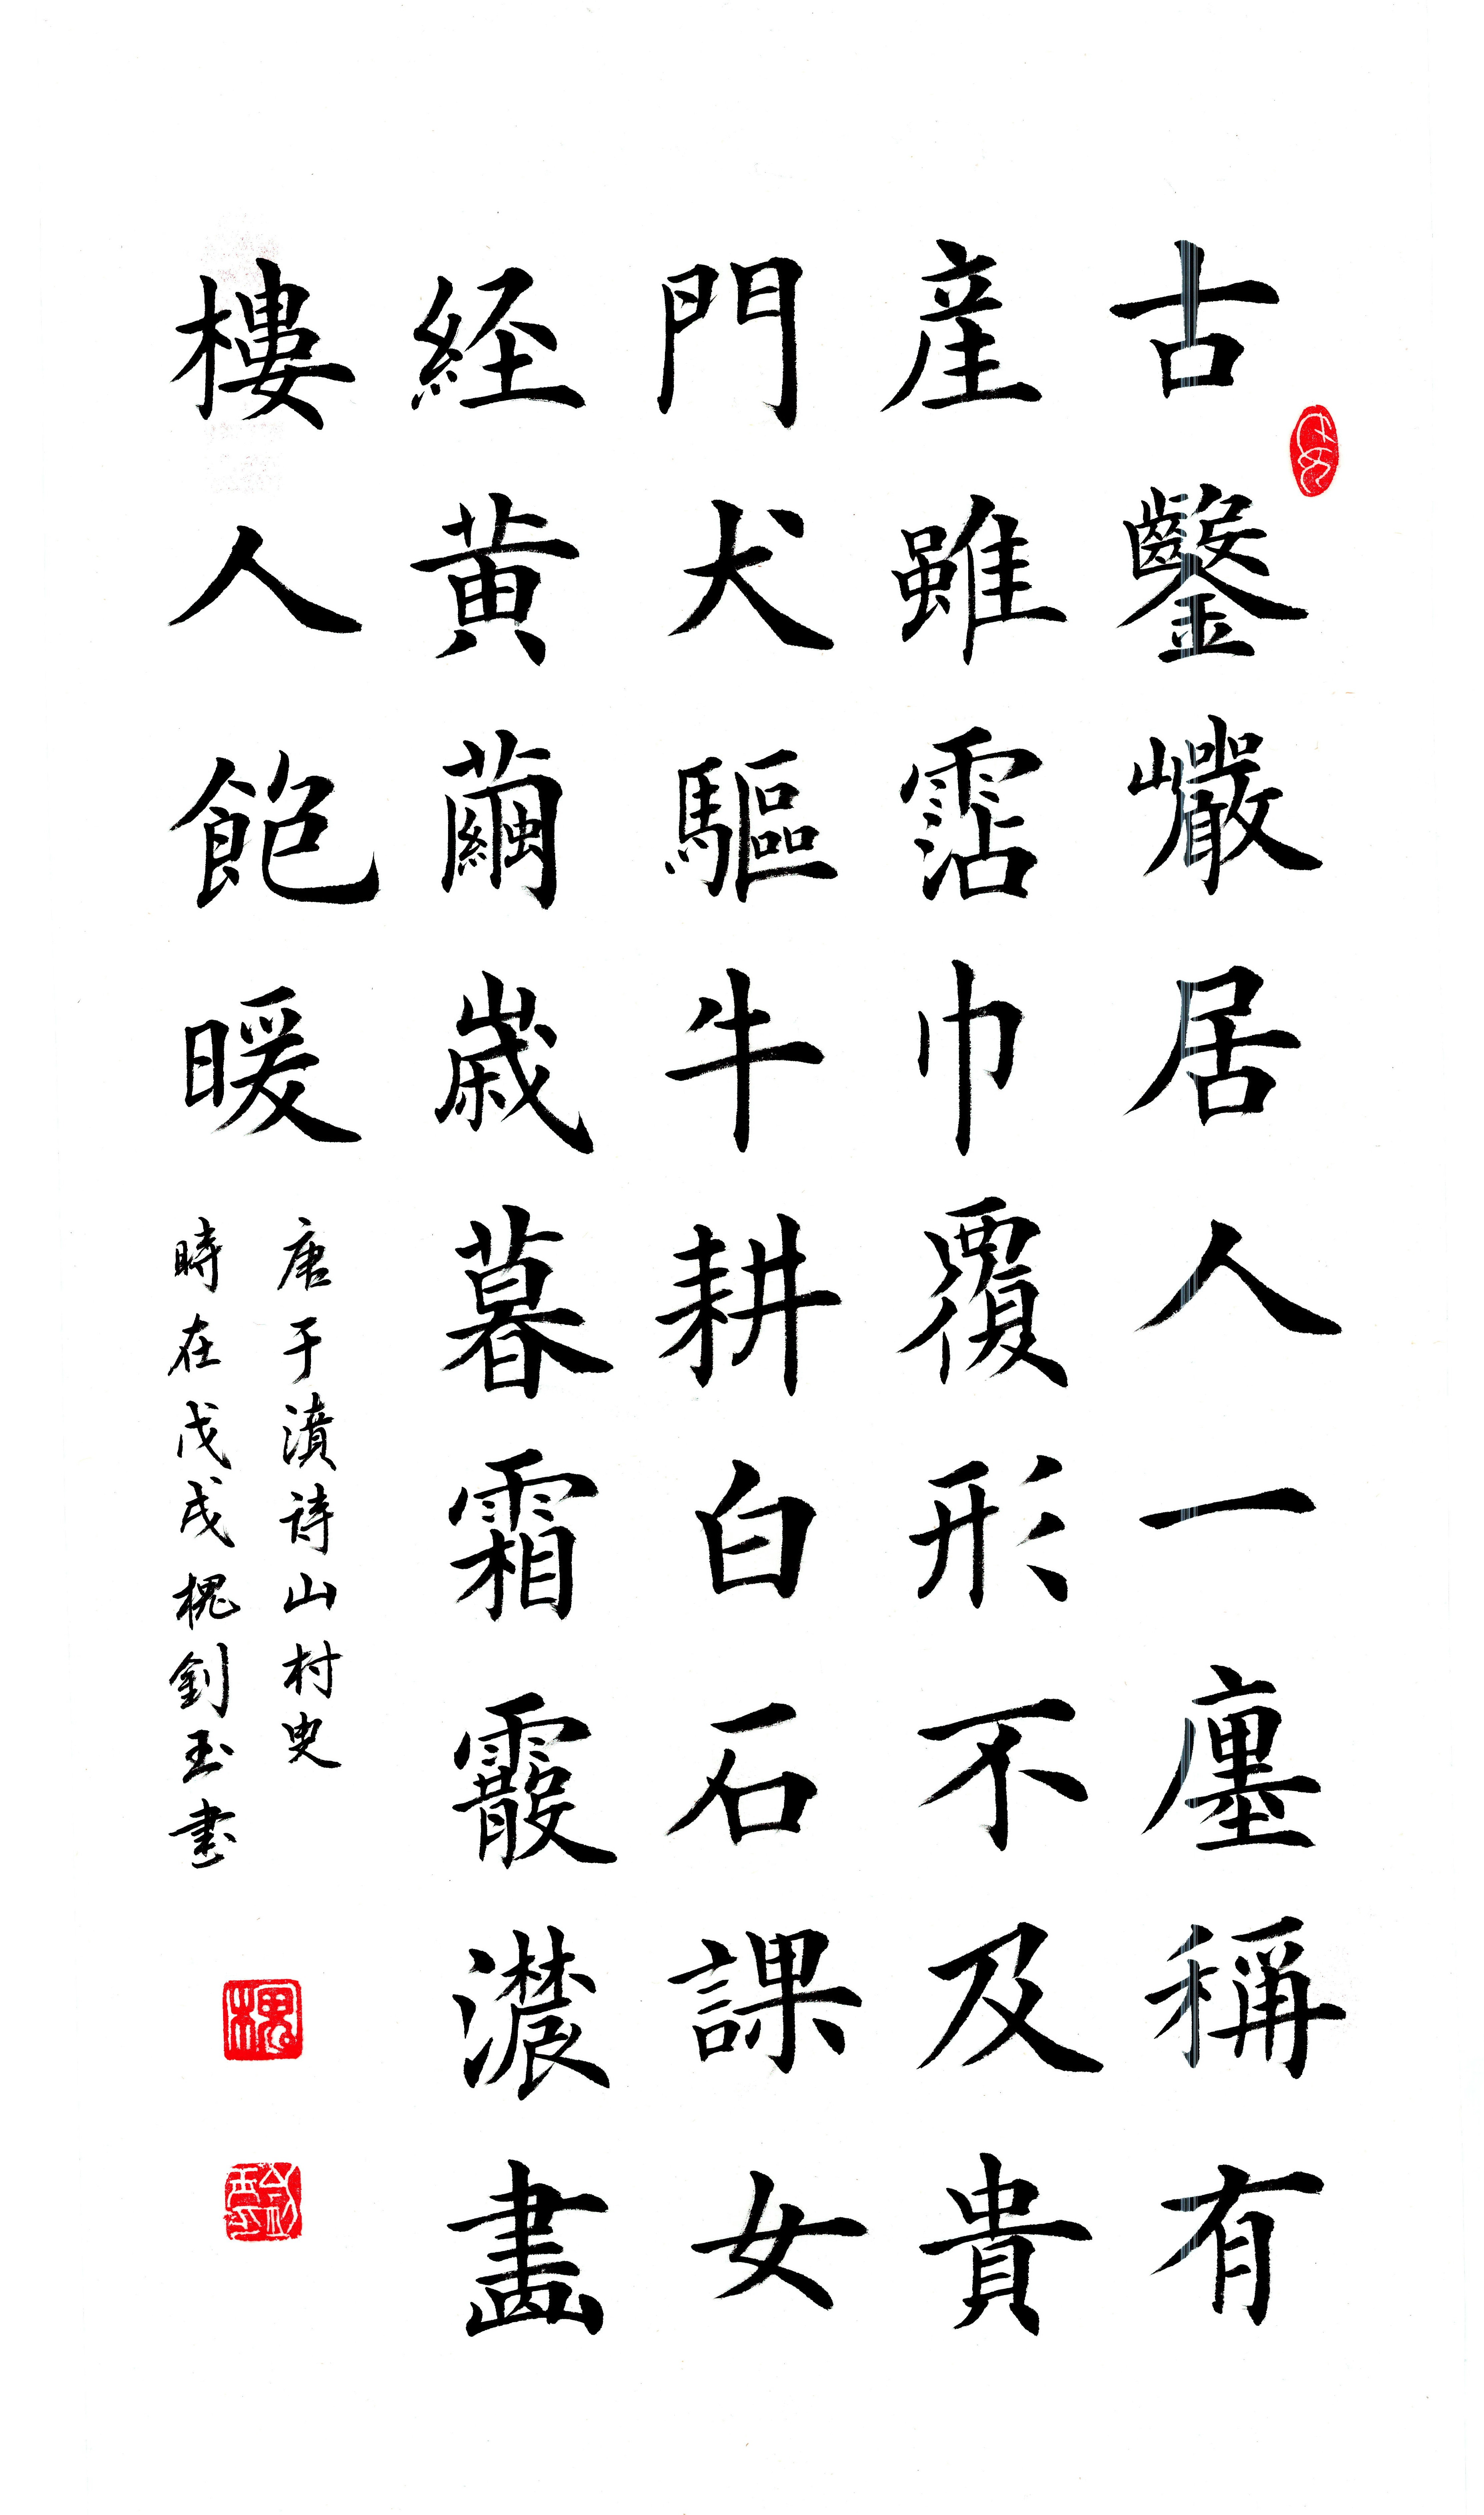 古鑿巖居人一廛稱有
産雖霑巾覆形不及貴
門犬驅牛耕白石課女
経黄繭歲暮霜霰濃畫
樓人飽暖
唐于濆诗山村叟
時在戊戌槐劉玉書
槐